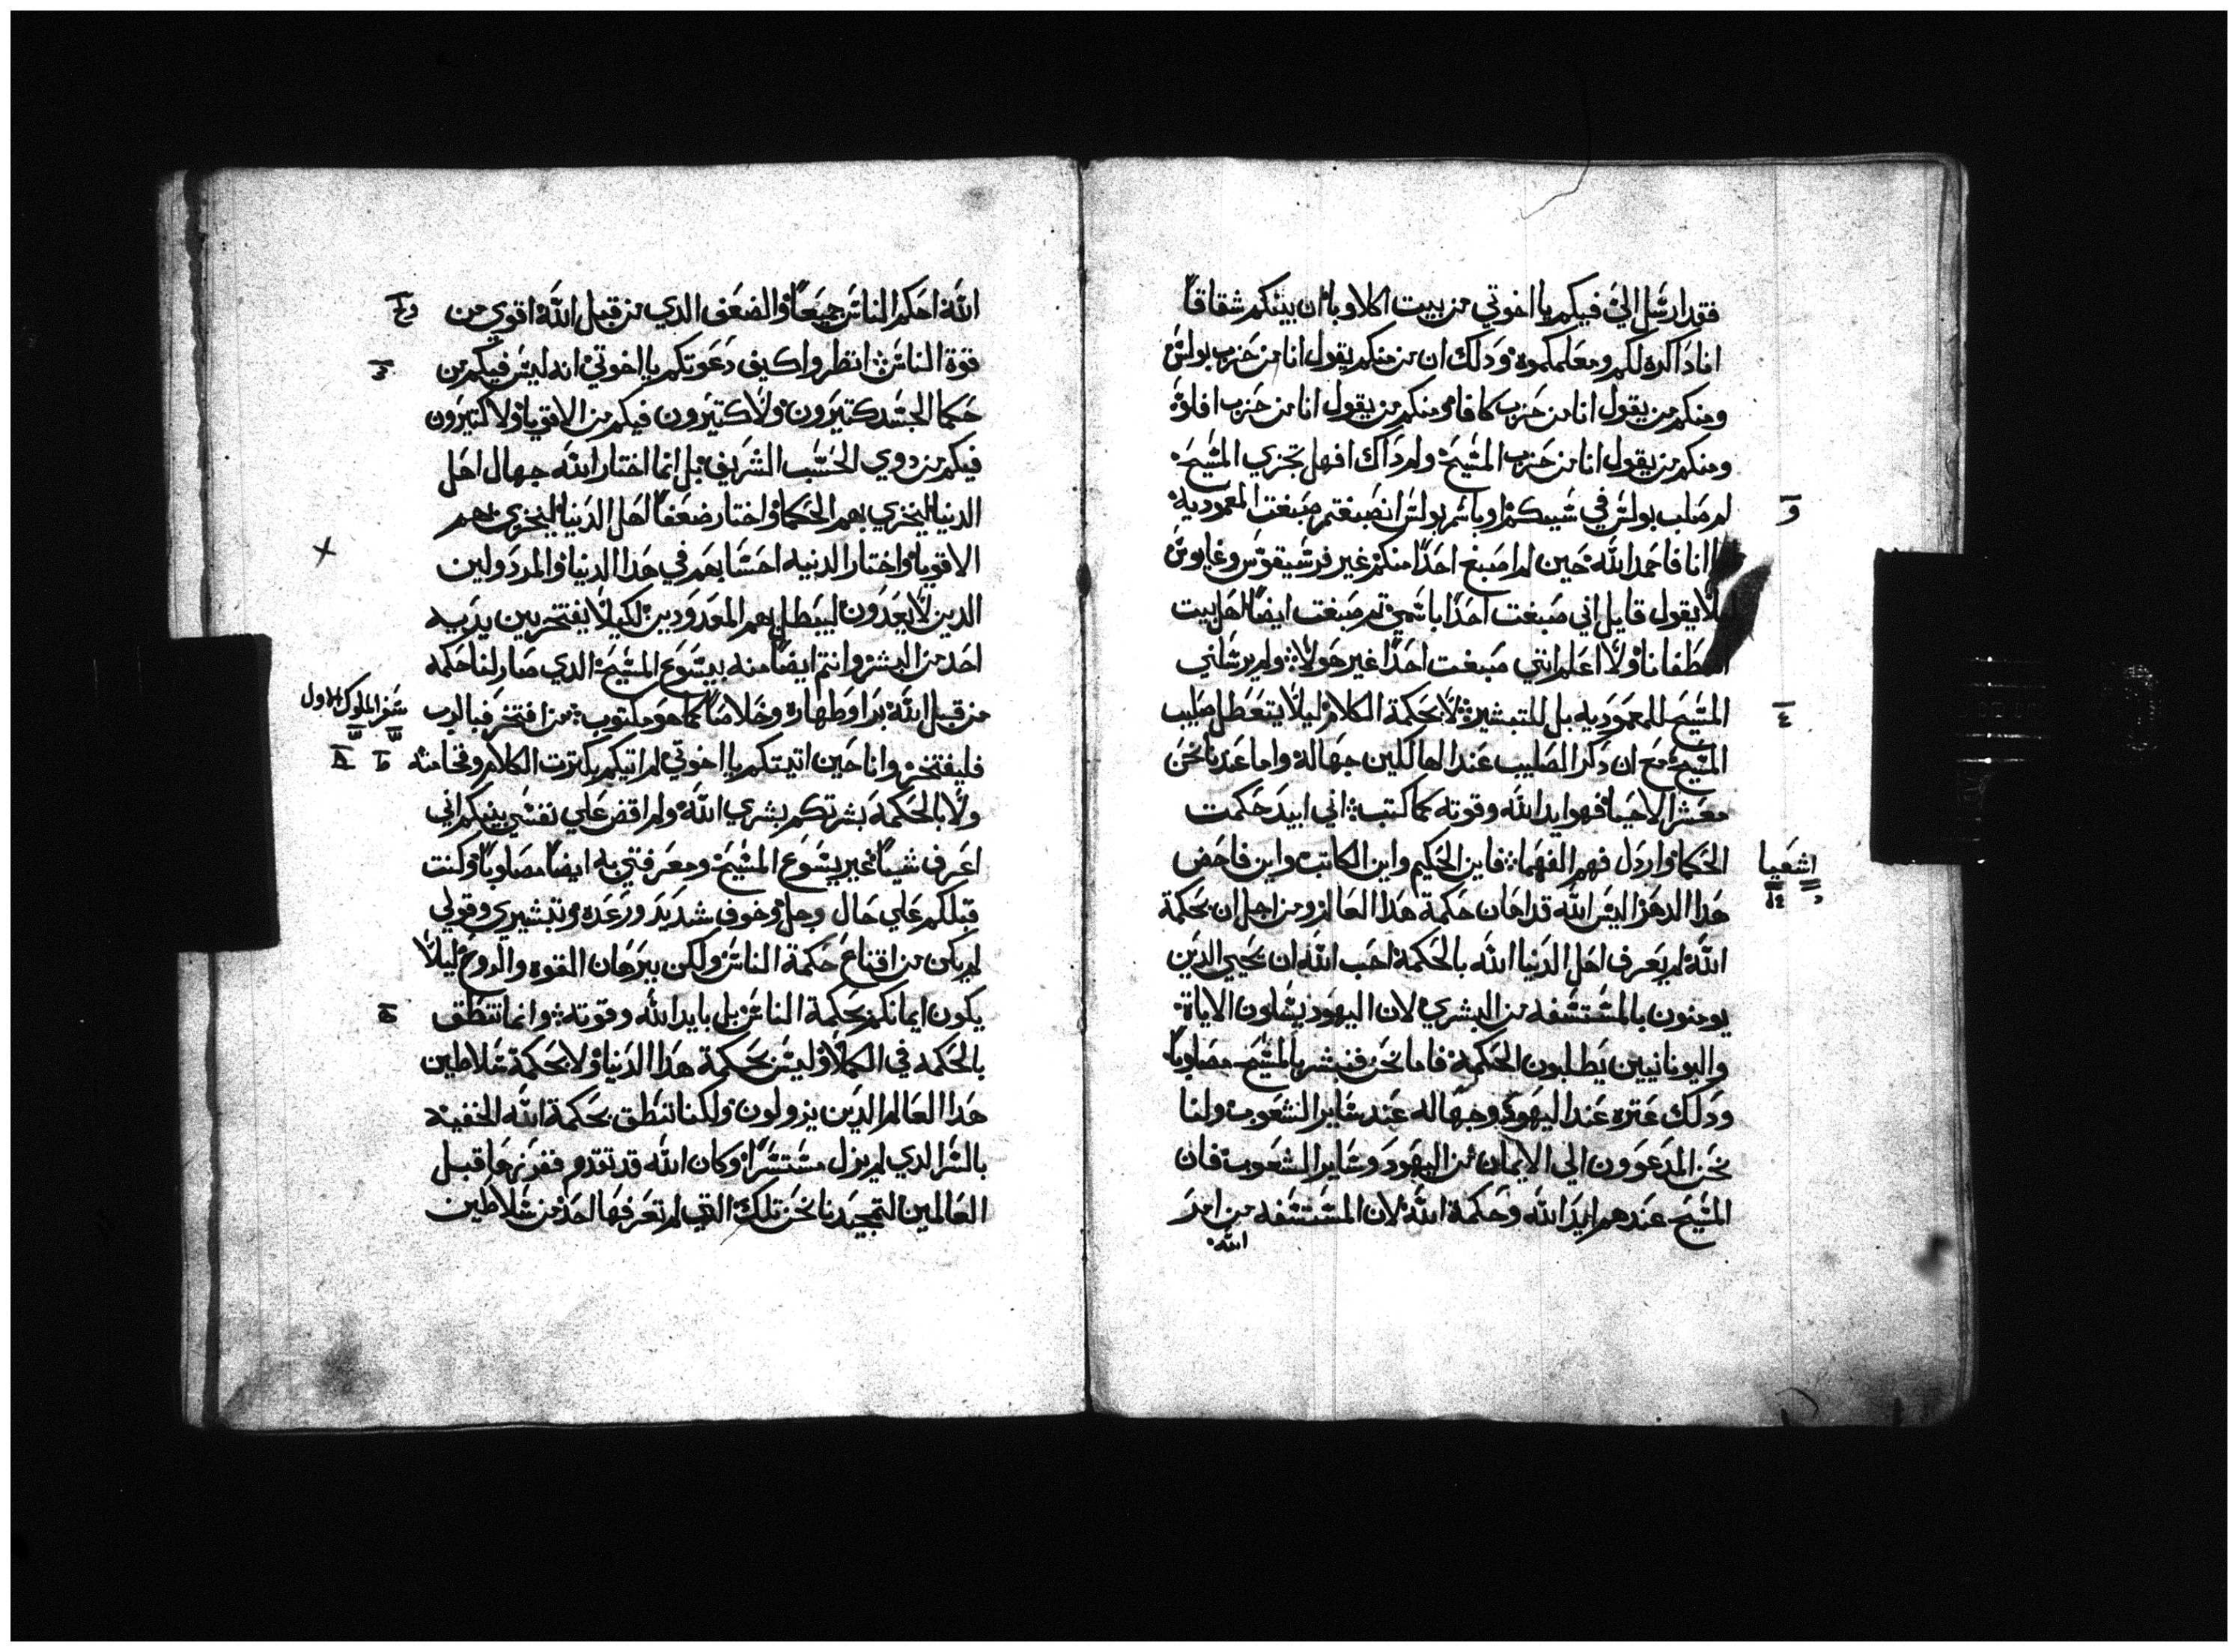 فقد ارسل الي فيكم يا اخوتي من بيت اكلاويا ان بينكم شقاقاً
انا ذاكره لكم ومعلمكموه ودلك ان من منكم يقول انا من حزب بولس
ومنكم من يقول انا من حزب كافا ومنكم من يقول انا من حزب افلو
ومنكم من يقول انا من حزب المسيح ولم داك افهل تجزي المسيح
ام صلب بولس في سببكم او باسم بولس انصبغتم صبغت المعموديه
و
انا فاحمد الله حين لم اصبغ احدًا منكم غير قرسيقوس وغايوس
ليلا يقول قايل اني صبغت احدًا باسمي تم صبغت ايضًا اهل بيت
اصطفانا ولا اعلم انني صبغت احدًا غير هولا ولم يرسلني
المسيح للمعموديه بل للتبشير لا بحكمة الكلام ليلا يتعطل صليب
٤
المسيح مع ان دكر الصليب عند الهالكين جهاله واما عندنا نحن
معشر الاحيا فهو ايد الله وقوته كما كتب اني ابيد حكمت
الحكما واردل فهم الفهما فاين الحكيم واين الكاتب واين فاحص
اشعيا
هدا الدهر اليس الله قد اهان حكمة هدا العالم ومن اجل ان بحكمة
الله لم يعرف اهل الدنيا الله بالحكمة احب الله ان يحيي الدين
يومنون بالمستسفه من البشري لان اليهود يسلون الاياة
واليونانيين يطلبون الحكمة فاما نحن فنبشر بالمسيح مصلوبًا
ودلك عتره عند اليهود وجهاله عند ساير الشعوب ولنا
نحن المدعوون الي الايمان من اليهود وساير الشعوب فان
المسيح عندهم ايد الله وحكمة الله لان المستسفه من امر
الله
الله احكم الناس جميعًا والضعف الدي من قبل الله اقوي من
قوة الناس انظروا كيف دعوتكم يا اخوتي انه ليس فيكم من
حكما الجسد كتيرون ولا كتيرون فيكم من الاقويا ولا كتيرون
فيكم من دوي الحسب الشريف بل انما اختار الله جهال اهل
الدنيا ليخزي بهم الحكما واختار ضعفا اهل الدنيا ليخزي بهم
الاقويا واختار الدنيه احسابهم في هدا الدنيا والمردولين
الدين لا يعدون ليبطل بهم المعدودين لكيلا يفتخر بين يديه
احد من البشر وانتم ايضًا منه بيسوع المسيح الدي صار لنا حكمه
من قبل الله برا وطهارة وخلاصًا كما هو مكتوب من افتخر فبالرب
سفر الملوك الاول
فليفتخر وانا حين اتيتكم يا اخوتي لم اتيكم بكترت الكلام وفخامته
ولا بالحكمه بشرتكم بشري الله ولم اقض علي نفسي بينكم اني
اعرف شيًا غير يسوع المسيح ومعرفتي به ايضًا مصلوبًا وكنت
قبلكم علي حال وجل وخوف شديد ورعده وتبشيري وقولي
لم يكن من اقناع حكمة الناس ولكن ببرهان القوه والروح ليلا
يكون ايمانكم بحكمة الناس بل بايد الله وقوته وانما نتنطق
بالحكمه في الكملا وليس بحكمة هدا الدنيا ولا بحكمة سلاطين
هدا العالم الدين يزولون ولكنا ننطق بحكمة الله الخفيه
بالسر الدي لم يزل مستسرًا وكان الله قد تقدم ففرزها قبل
العالمين لتمجيدنا نحن تلك التي لم تعرفها احد من سلاطين